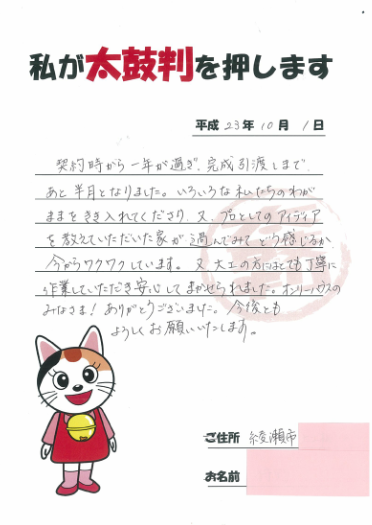 私が太鼓判を押します
平成23年10月1日
契約時から一年が過ぎ、完成引渡しまで、
あと半月となりました。いろいろな私たちのわが
ままをきき入れてくださり、又、プロとしてのアイディア
を教えていただいた家が過んでみてどう感じるか
今からワクワクしています。又大工の方にはとても丁寧に
作業していただき安心してまかせられました。オンリーハウスの
みなさま！ありがとうございました。今後とも
よろしくお願いいたします。
ご住所 綾瀬市
お名前